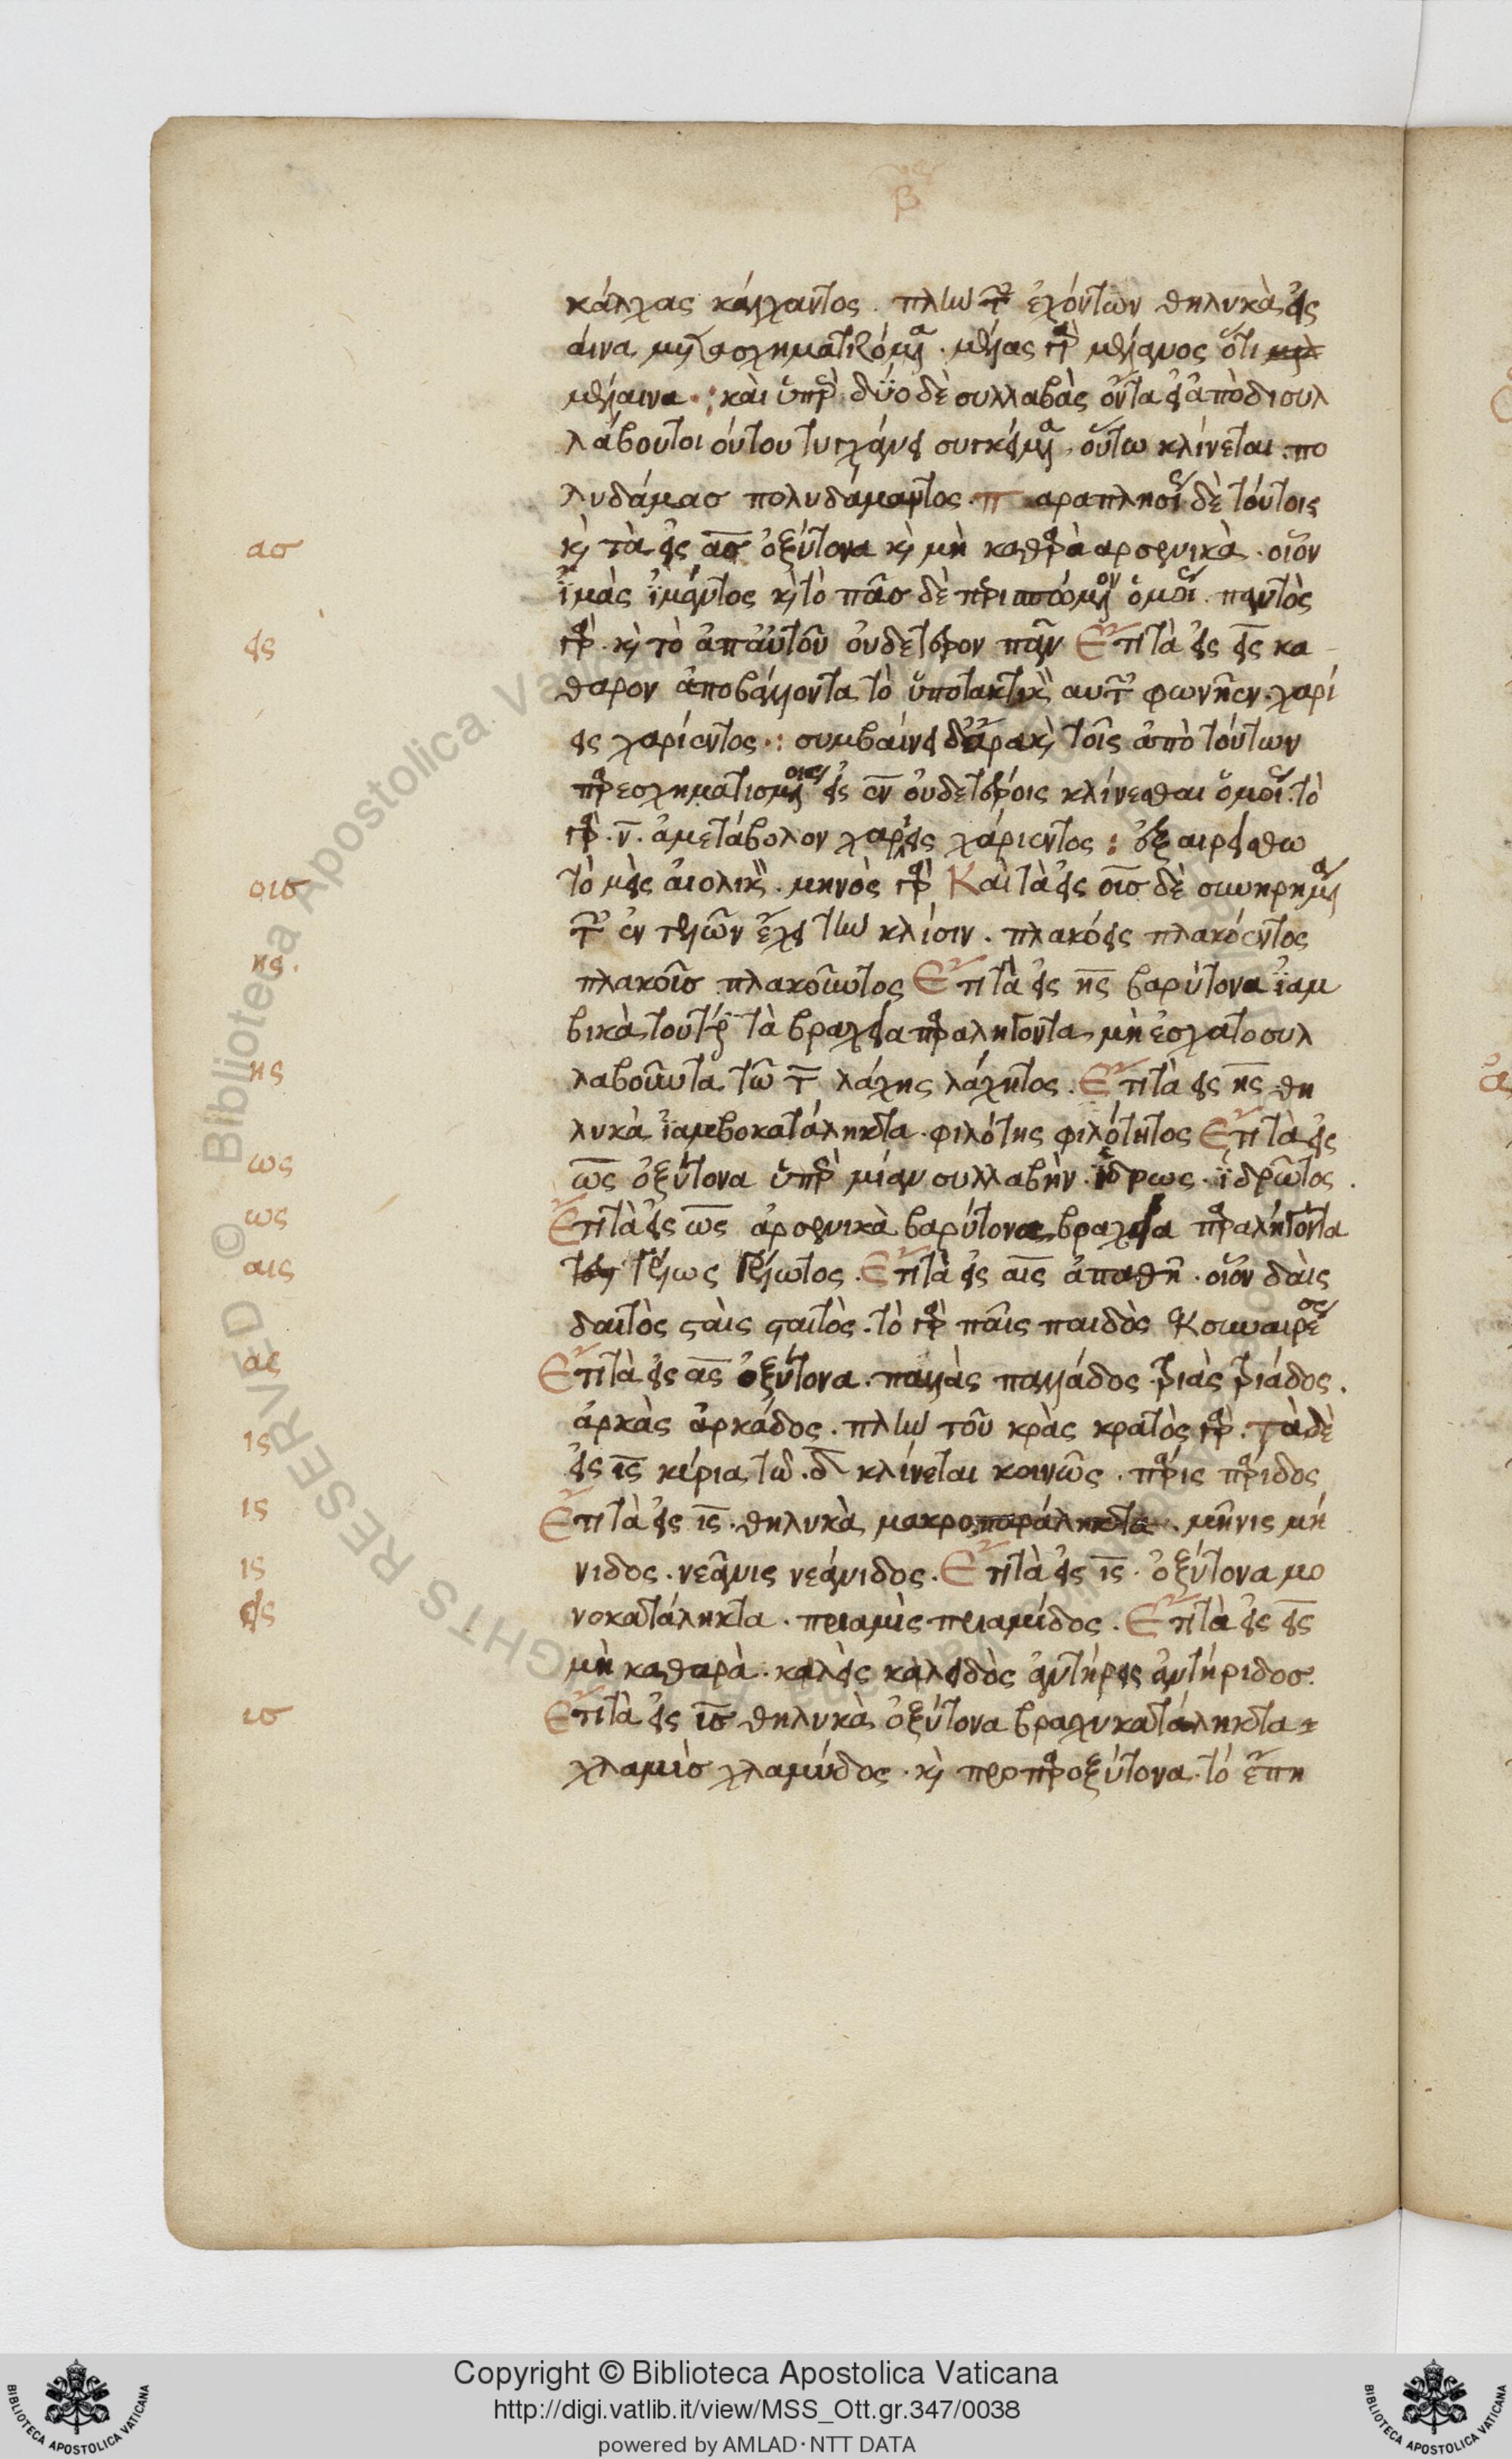 β
κάλχας κάλχαντος. πλὴν τ ἐχόντων θηλυκὰ εἰς
άινα μὴ
μέλαινα : καὶ ὑπὲρ δύο δὲ συλλαβὰς ὄντα εἰ ἀπὸ δισυλ
λάβου τοιούτου τυγχάνει συγκείμενα οὕτω κλίνεται. πο
λυδάμασ πολυδάμαντος. παραπλησίως δὲ τούτοις
ασ
καὶ τὰ εἰς ασ ὀξύτονα καὶ μὴ καθαρὰ αρσενικὰ. οἷον
ἱμὰς ἱμάντος καὶ τὸ πᾶσ δὲ περισπώμενον ὁμοίως παντὸς
εις
γὰρ. καὶ τὸ ἀπ αὐτοῦ οὐδέτερον πᾶν Ἔτι τὰ εἰς εις κα
θαρον ἀποβάλλοντα τὸ ὑποτακτικὸν αυτ φωνῆεν. χαρί
εις χαρίεντος : συμβαίνει δ' ἄρα καὶ τοῖς ἀπὸ τούτων
παρεσχηματισμένοις εἰς εν οὐδετέροις κλίνεσθαι ὁμοίως. τὸ
γὰρ. ν. ἀμετάβολον χαρίεις χάριεντος : ἐξαιρείσθω
οισ
τὸ μεὶς αἰολικὸν. μηνὸς γὰρ Καὶ τὰ εἰς οισ δὲ συνηρημένα
τ ἐν τελῶν ἔχει τὴν κλίσιν. πλακόεις πλακόεντος
ης.
πλακοῦσ πλακοῦντος Ἔτι τὰ εἰς ης βαρύτονα ἰαμ
βικὰ τουτέστι τὰ βραχεία παραλήγοντα μὴ ἐσχατοσυλ
ης
λαβοῦντα τῶ τ λάχης λάχητος. Ἔτι τὰ εἰς ης θη
λυκὰ ἰαμβοκατάληκτα. φιλότης φιλότητος Ἔτι τὰ εἰς
ως
ως ὀξύτονα ὑπὲρ μίαν συλλαβὴν. ἱδρως. ἱδρῶτος.
ως
Ἔτι τὰ εἰς ως ἀρσενικὰ βαρύτονα βραχεία παραλήγοντα
αις
γέλως γέλωτος. Ἔτι τὰ εἰς αις ἀπαθῆ. οἷον δαὶς
δαιτὸς σταὶς σταιτὸς. τὸ γὰρ παῖς παιδὸς ἐκ συναιρέσεως
ας
Ἔτι τὰ εἰς ας ὀξύτονα. παλλὰς παλλάδος τριὰς τριάδος.
ἀρκὰς ἀρκάδος. πλὴν τοῦ κρὰς κρατὸς γὰρ. τὰ δὲ
ις
εἰς ις κύρια τῶ. δ κλίνεται κοινῶς. πάρις πάριδος
ις
Ἔτι τὰ εἰς ις. θηλυκὰ μακροπαράληκτα. μῆνις μή
ις
νιδος. νεᾶνις νεάνιδος. Ἔτι τὰ εἰς ις. ὀξύτονα μο
εις
νοκατάληκτα. πριαμὶς πριαμίδος. Ἔτι τὰ εἰς εις
μὴ καθαρὰ. καλεὶς καλειδὸς ἀντήρεις ἀντήριδοσ.
ισ
Ἔτι τὰ εἰς ισ θηλυκὰ ὀξύτονα βραχυκατάληκτα
χλαμὺσ χλαμύδος. καὶ προπαροξύτονα. τὸ ἔπη
© Biblioteca Apostolica Vaticana
Copyright © Biblioteca Apostolica Vaticana
http://digi.vatlib.it/view/MSS_Ott.gr.347/0038
powered by AMLAD·NTT DATA
BIBLIOTECA APOSTOLICA VATICANA
BIBLIOTECA APOSTOLICA VATICANA